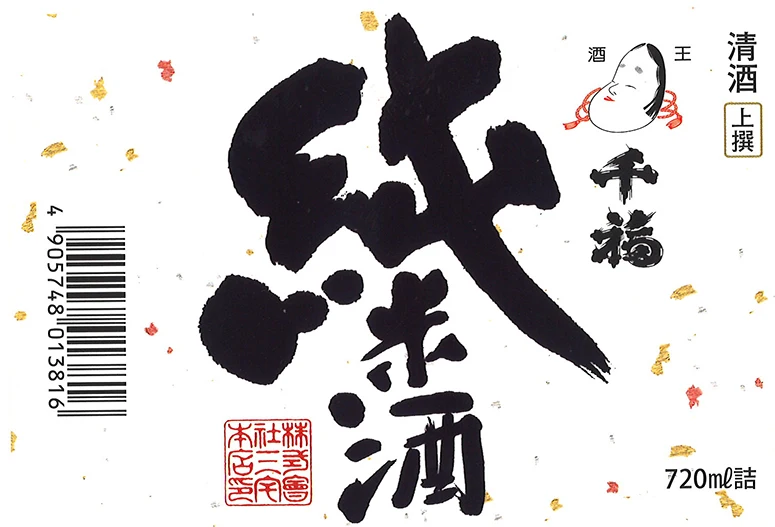 清酒
上撰
王
酒
千福
純米酒
株式會
社三宅
本店印
4 905748 013816
720㎖詰